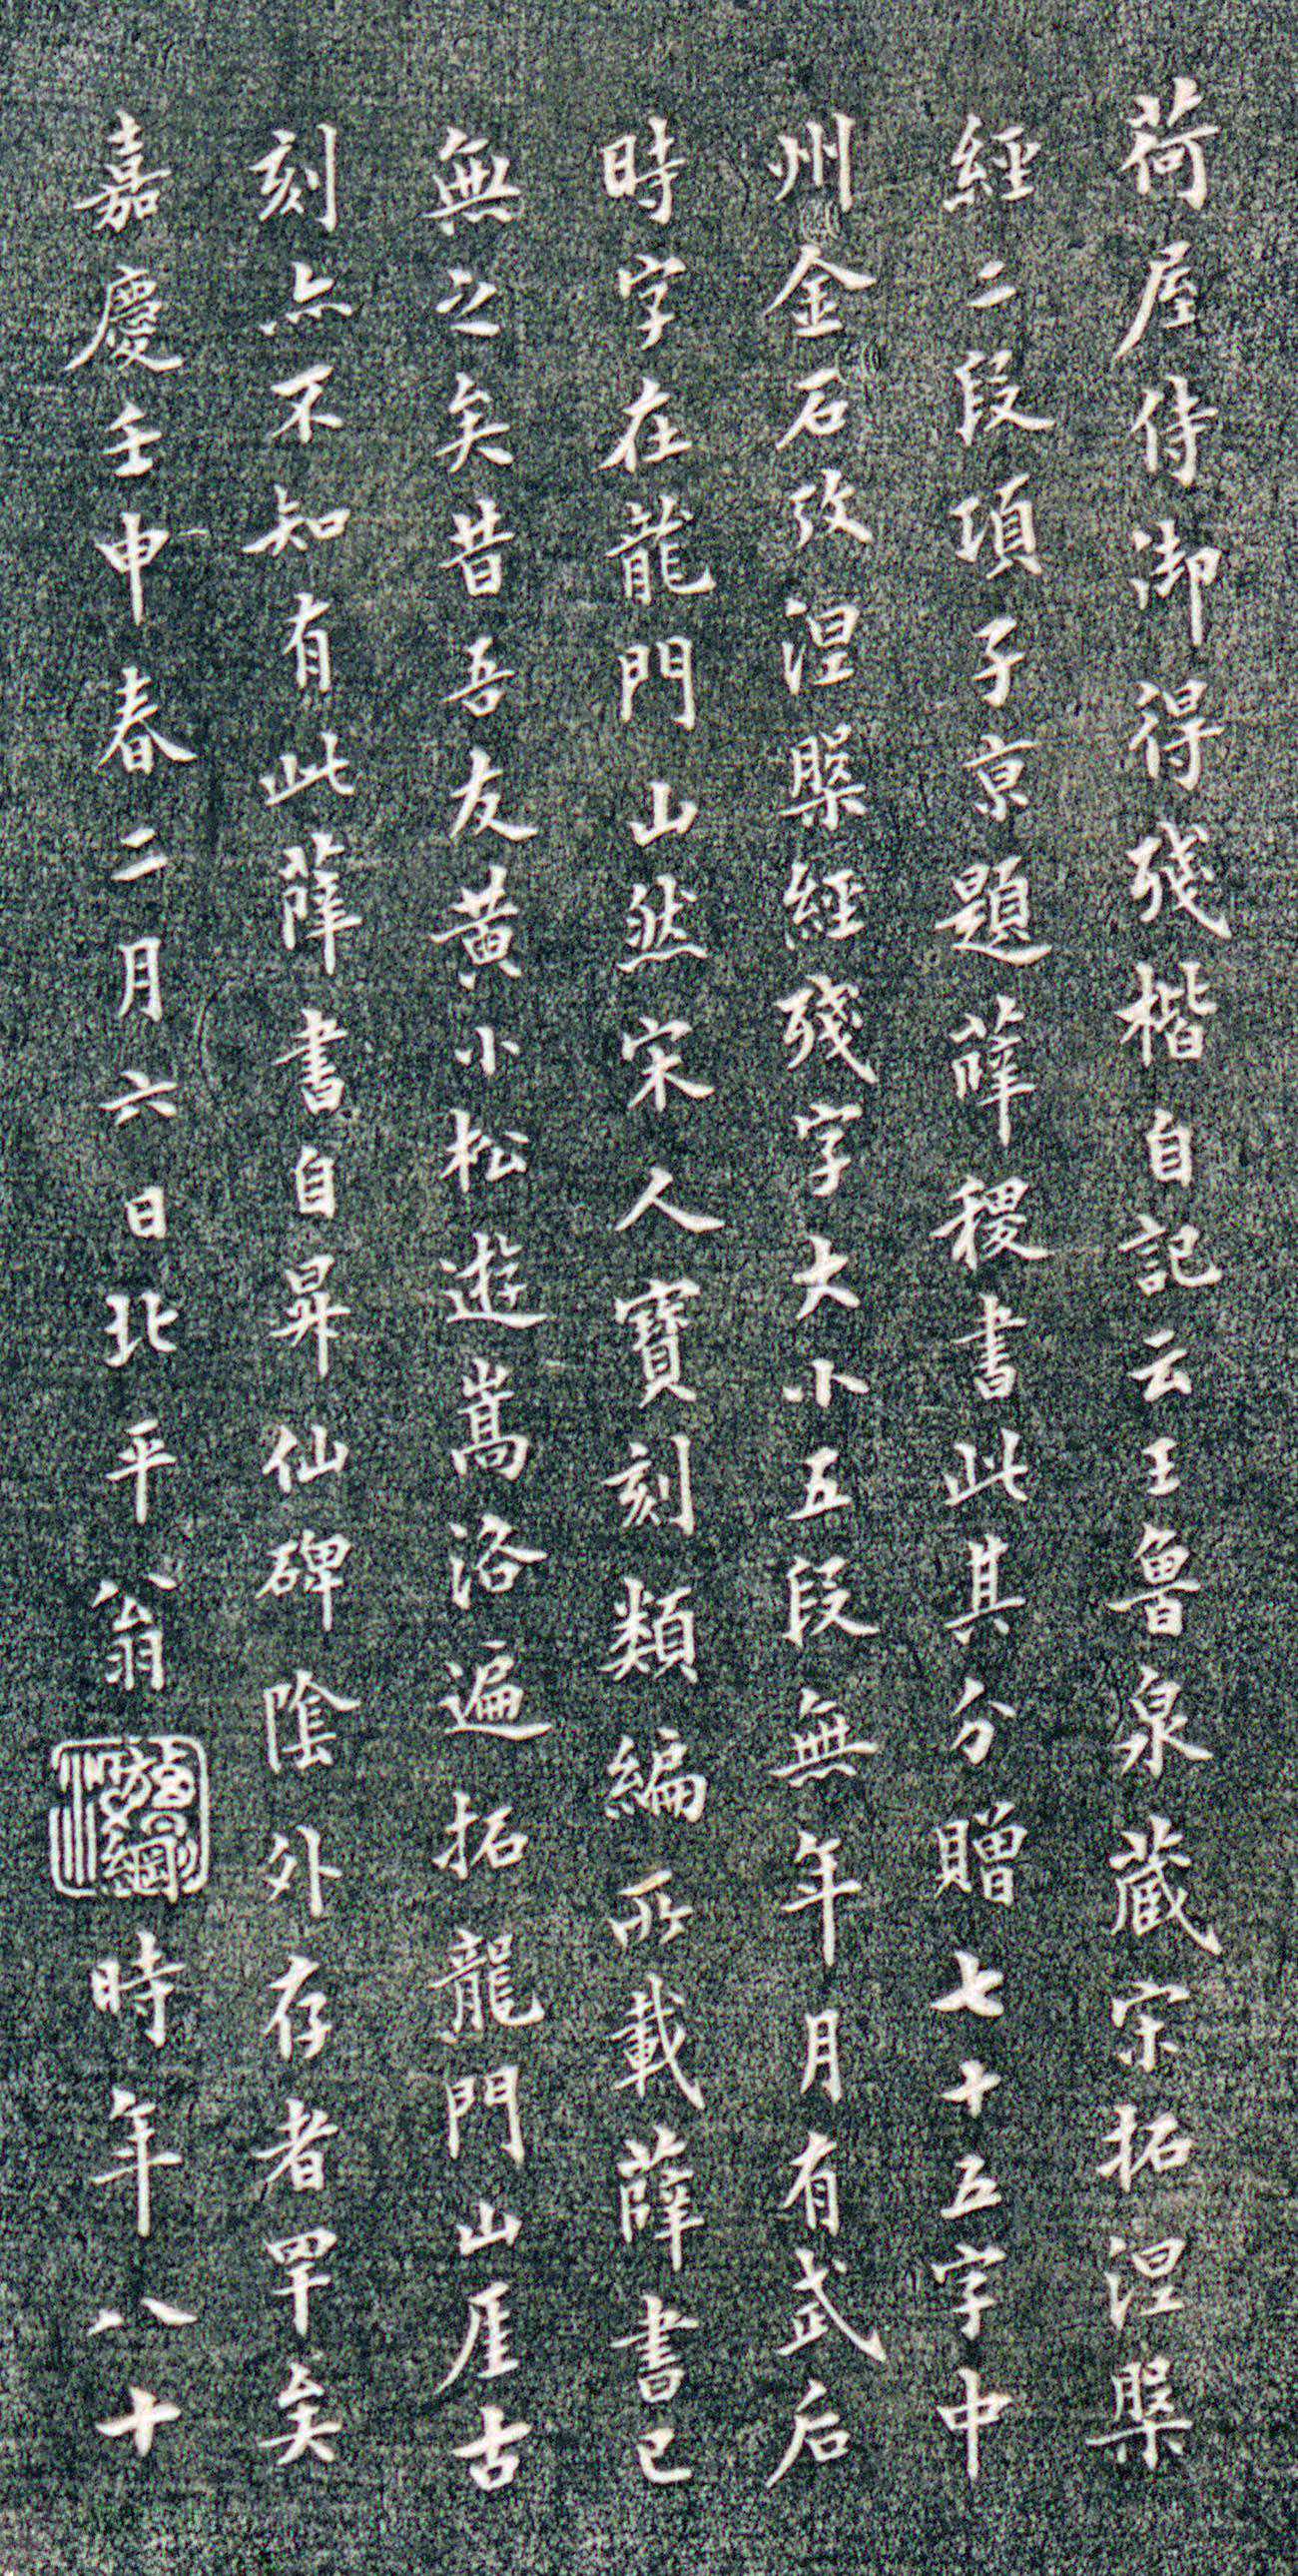 荷屋侍御得殘楷自記云王魯泉蔵宋拓涅槃
經二段項子京題薛稷書此其分贈七十五字中
州金石攷涅槃經殘字大小五段無年月有武后
時字在龍門山然宋人寶刻類編所載薛書已
無之矣昔吾友黃小松遊嵩洛遍拓龍門山厓古
刻亦不知有此薛書自昇仙碑陰外存者罕矣
嘉慶壬申春二月六日北平翁
翁方綱
時年八十